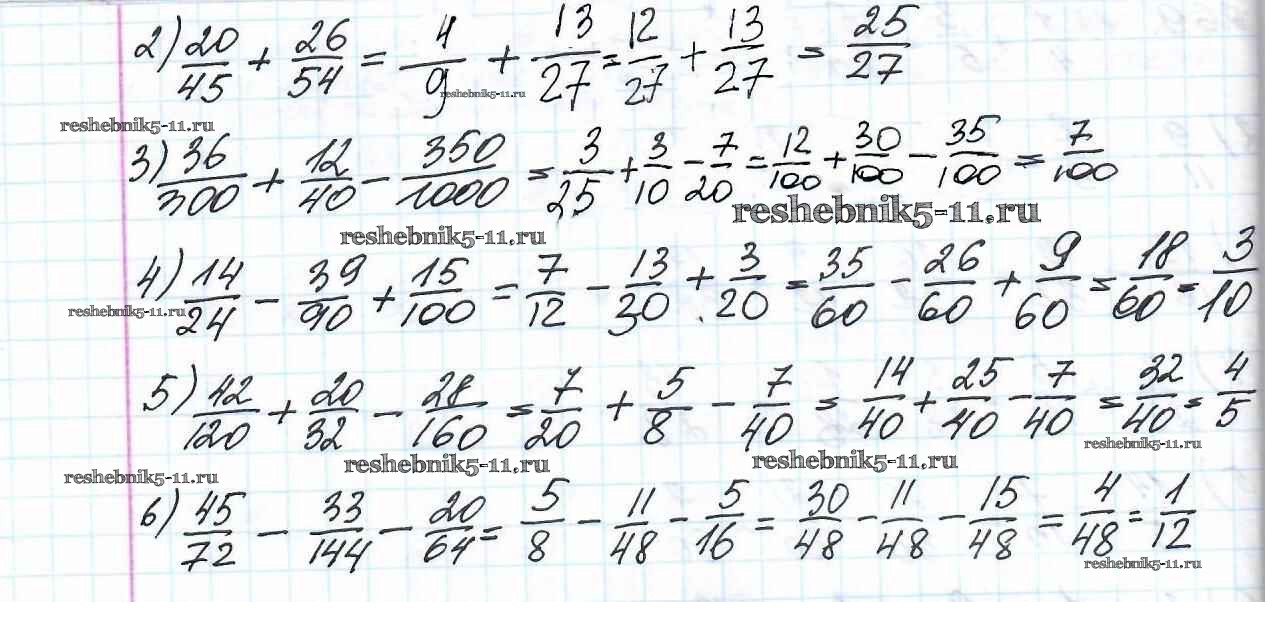 2) 20/45 + 26/54 = 4/9 + 13/27 = 12/27 + 13/27 = 25/27
reshebnik5-11.ru
reshebnik5-11.ru
3) 36/300 + 12/40 - 350/1000 = 3/25 + 3/10 - 7/20 = 12/100 + 30/100 - 35/100 = 7/100
reshebnik5-11.ru
reshebnik5-11.ru
4) 14/24 - 39/90 + 15/100 = 7/12 - 13/30 + 3/20 = 35/60 - 26/60 + 9/60 = 18/60 = 3/10
reshebnik5-11.ru
5) 42/120 + 20/32 - 28/160 = 7/20 + 5/8 - 7/40 = 14/40 + 25/40 - 7/40 = 32/40 = 4/5
reshebnik5-11.ru
reshebnik5-11.ru
reshebnik5-11.ru
reshebnik5-11.ru
6) 45/72 - 33/144 - 20/64 = 5/8 - 11/48 - 5/16 = 30/48 - 11/48 - 15/48 = 4/48 = 1/12
reshebnik5-11.ru